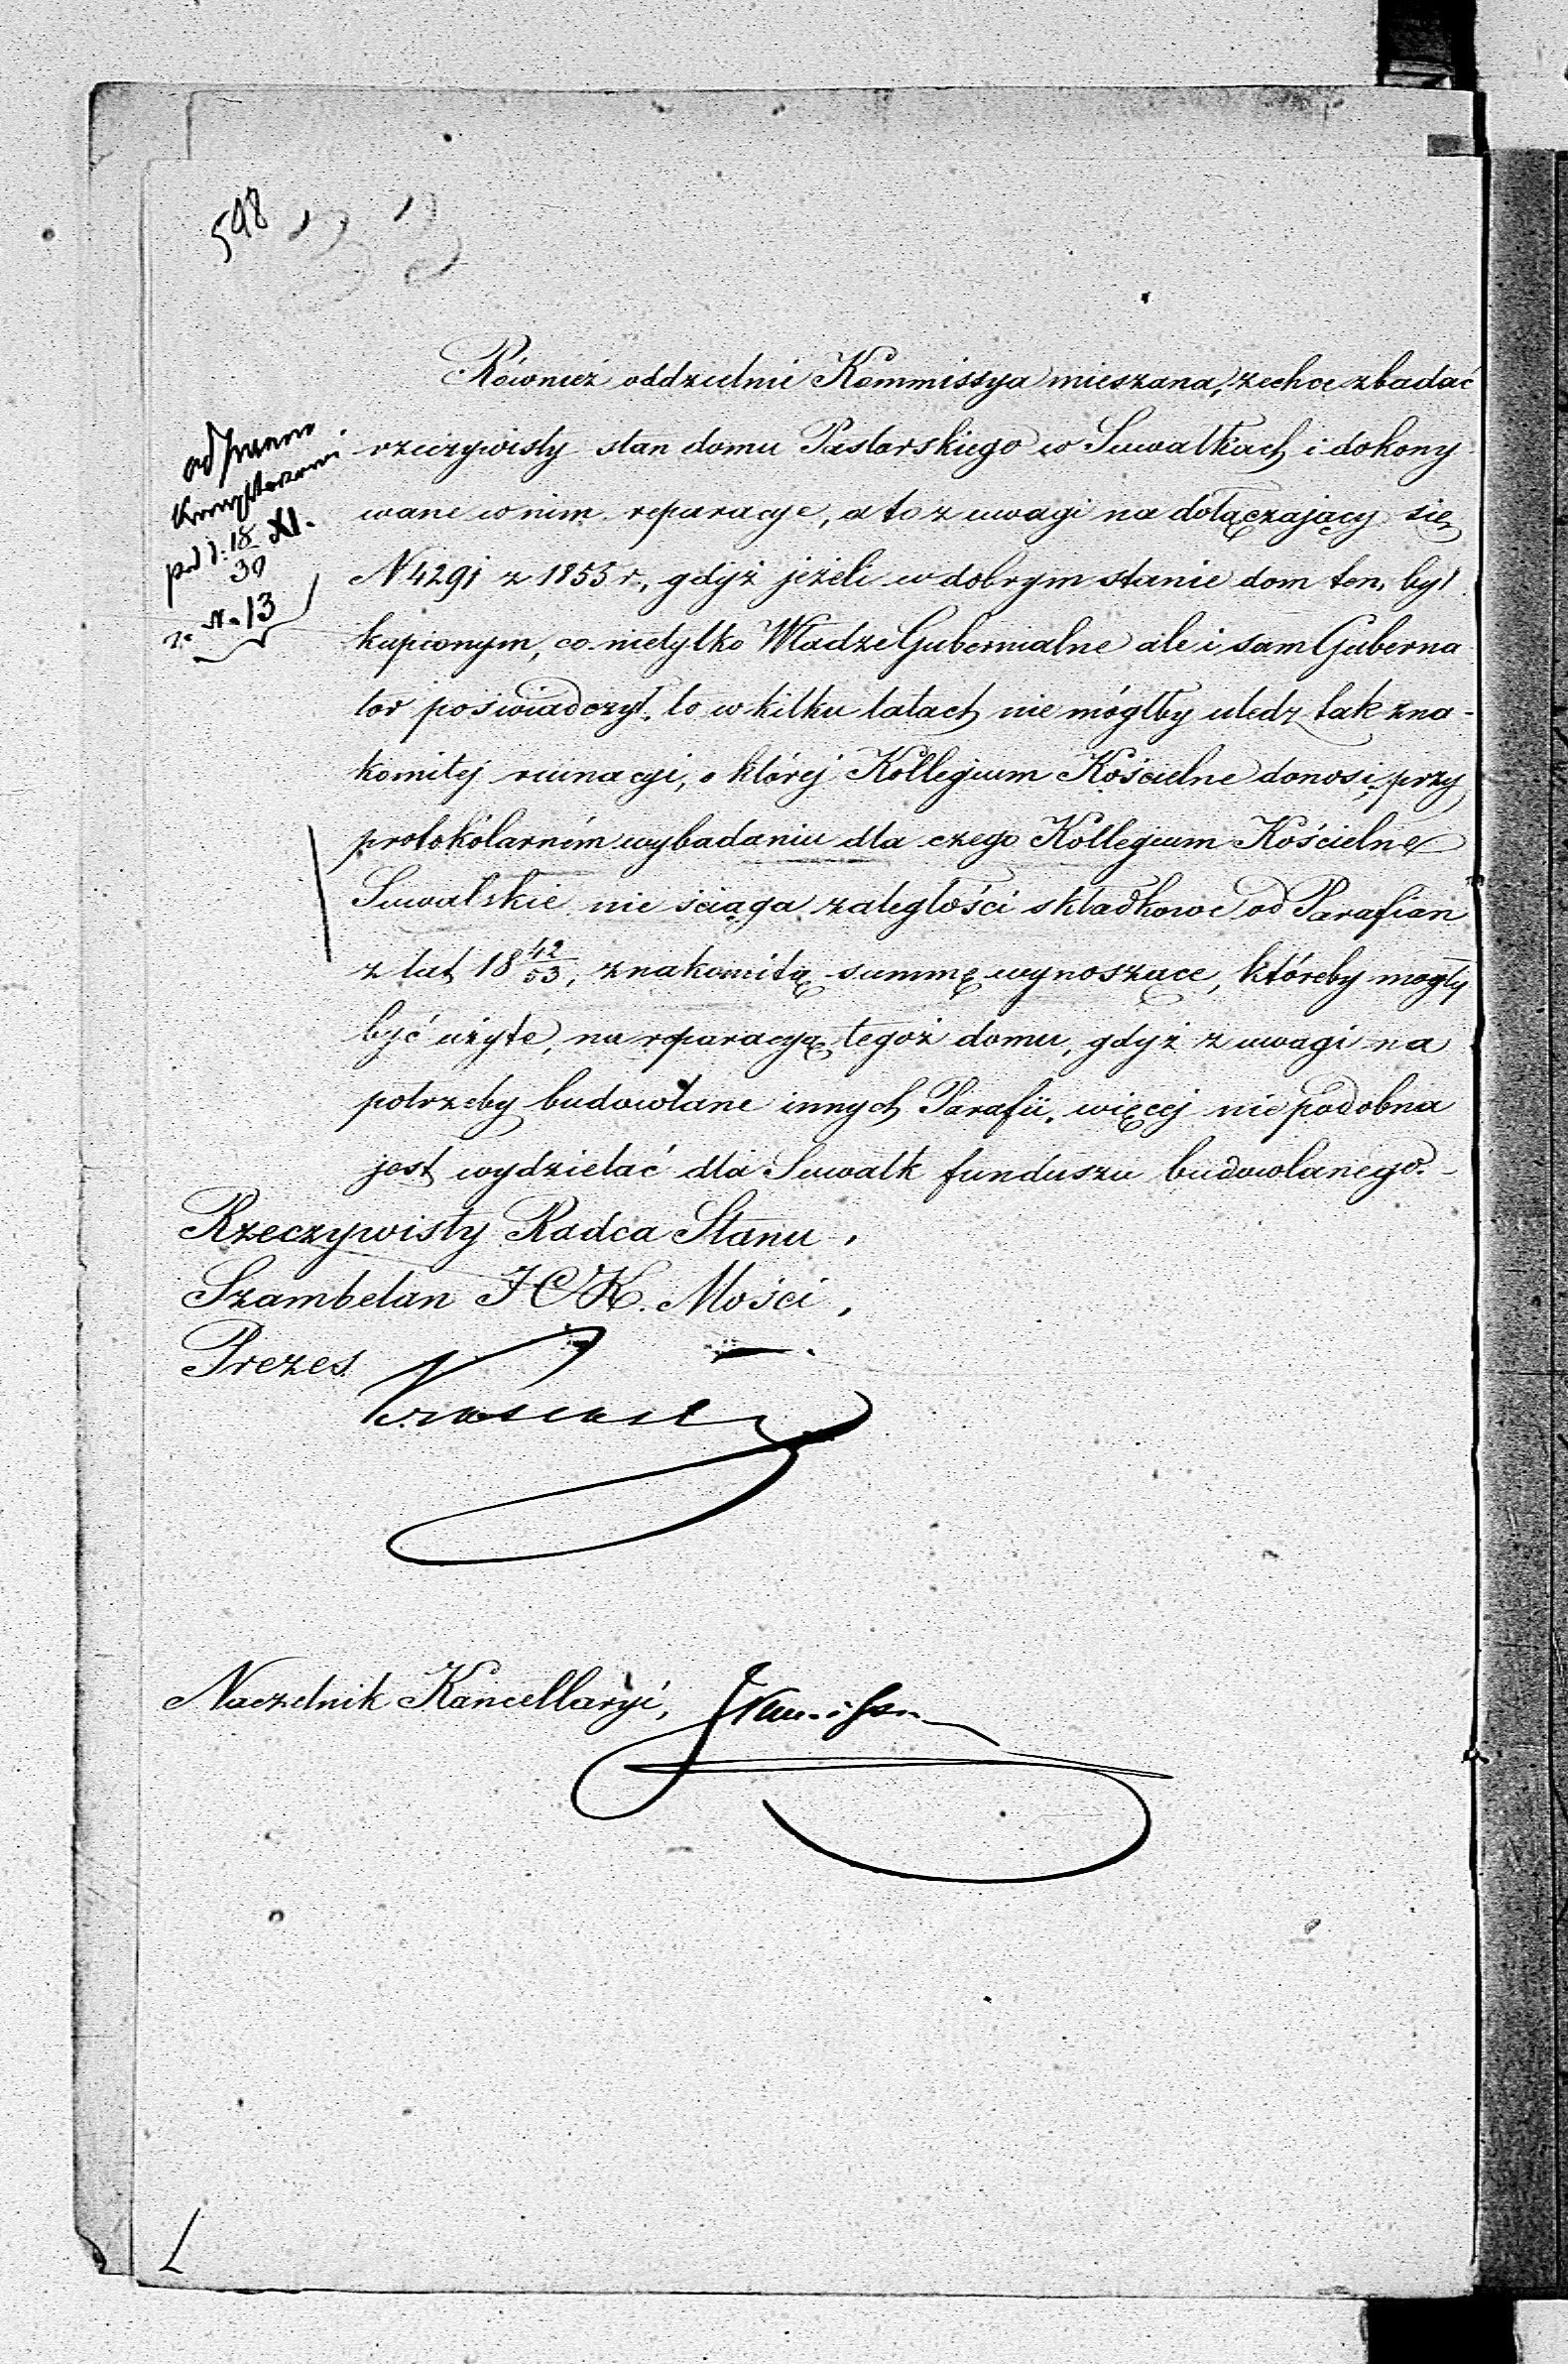 548
Również oddzielnie Kommissya mieszana, zechce zbadać
rzeczywisty stan domu Pastorskiego w Suwałkach i dokony
wane w nim reparacye, a to z uwagi na dołączający się
N 4291 z 1853 r., gdyż jeżeli w dobrym stanie dom ten, był
kupionym, co nietylko Władze Gubernialne ale i sam Guberna
tor poświadczył, to w kilku latach nie mógłby uledz tak zna-
komitej ruinacyi, o której Kollegium Kościelne donosi, przy
protokólarném wybadaniu dla czego Kollegium Kościelne
Suwalskie nie ściąga zaległości składkowe od Parafian
z lat 18 42/53, znakomitą summę wynoszące, któreby mogły
być użyte, na reparacyą tegoż domu, gdyż z uwagi na
potrzeby budowlane innych Parafii, więcej niepodobna
jest wydzielać dla Suwałk funduszu budowlanego.-
Rzeczywisty Radca Stanu,
Szambelan JCK. Mości,
Prezes
Naczelnik Kancellaryi,
18/30 XI.
N. 13